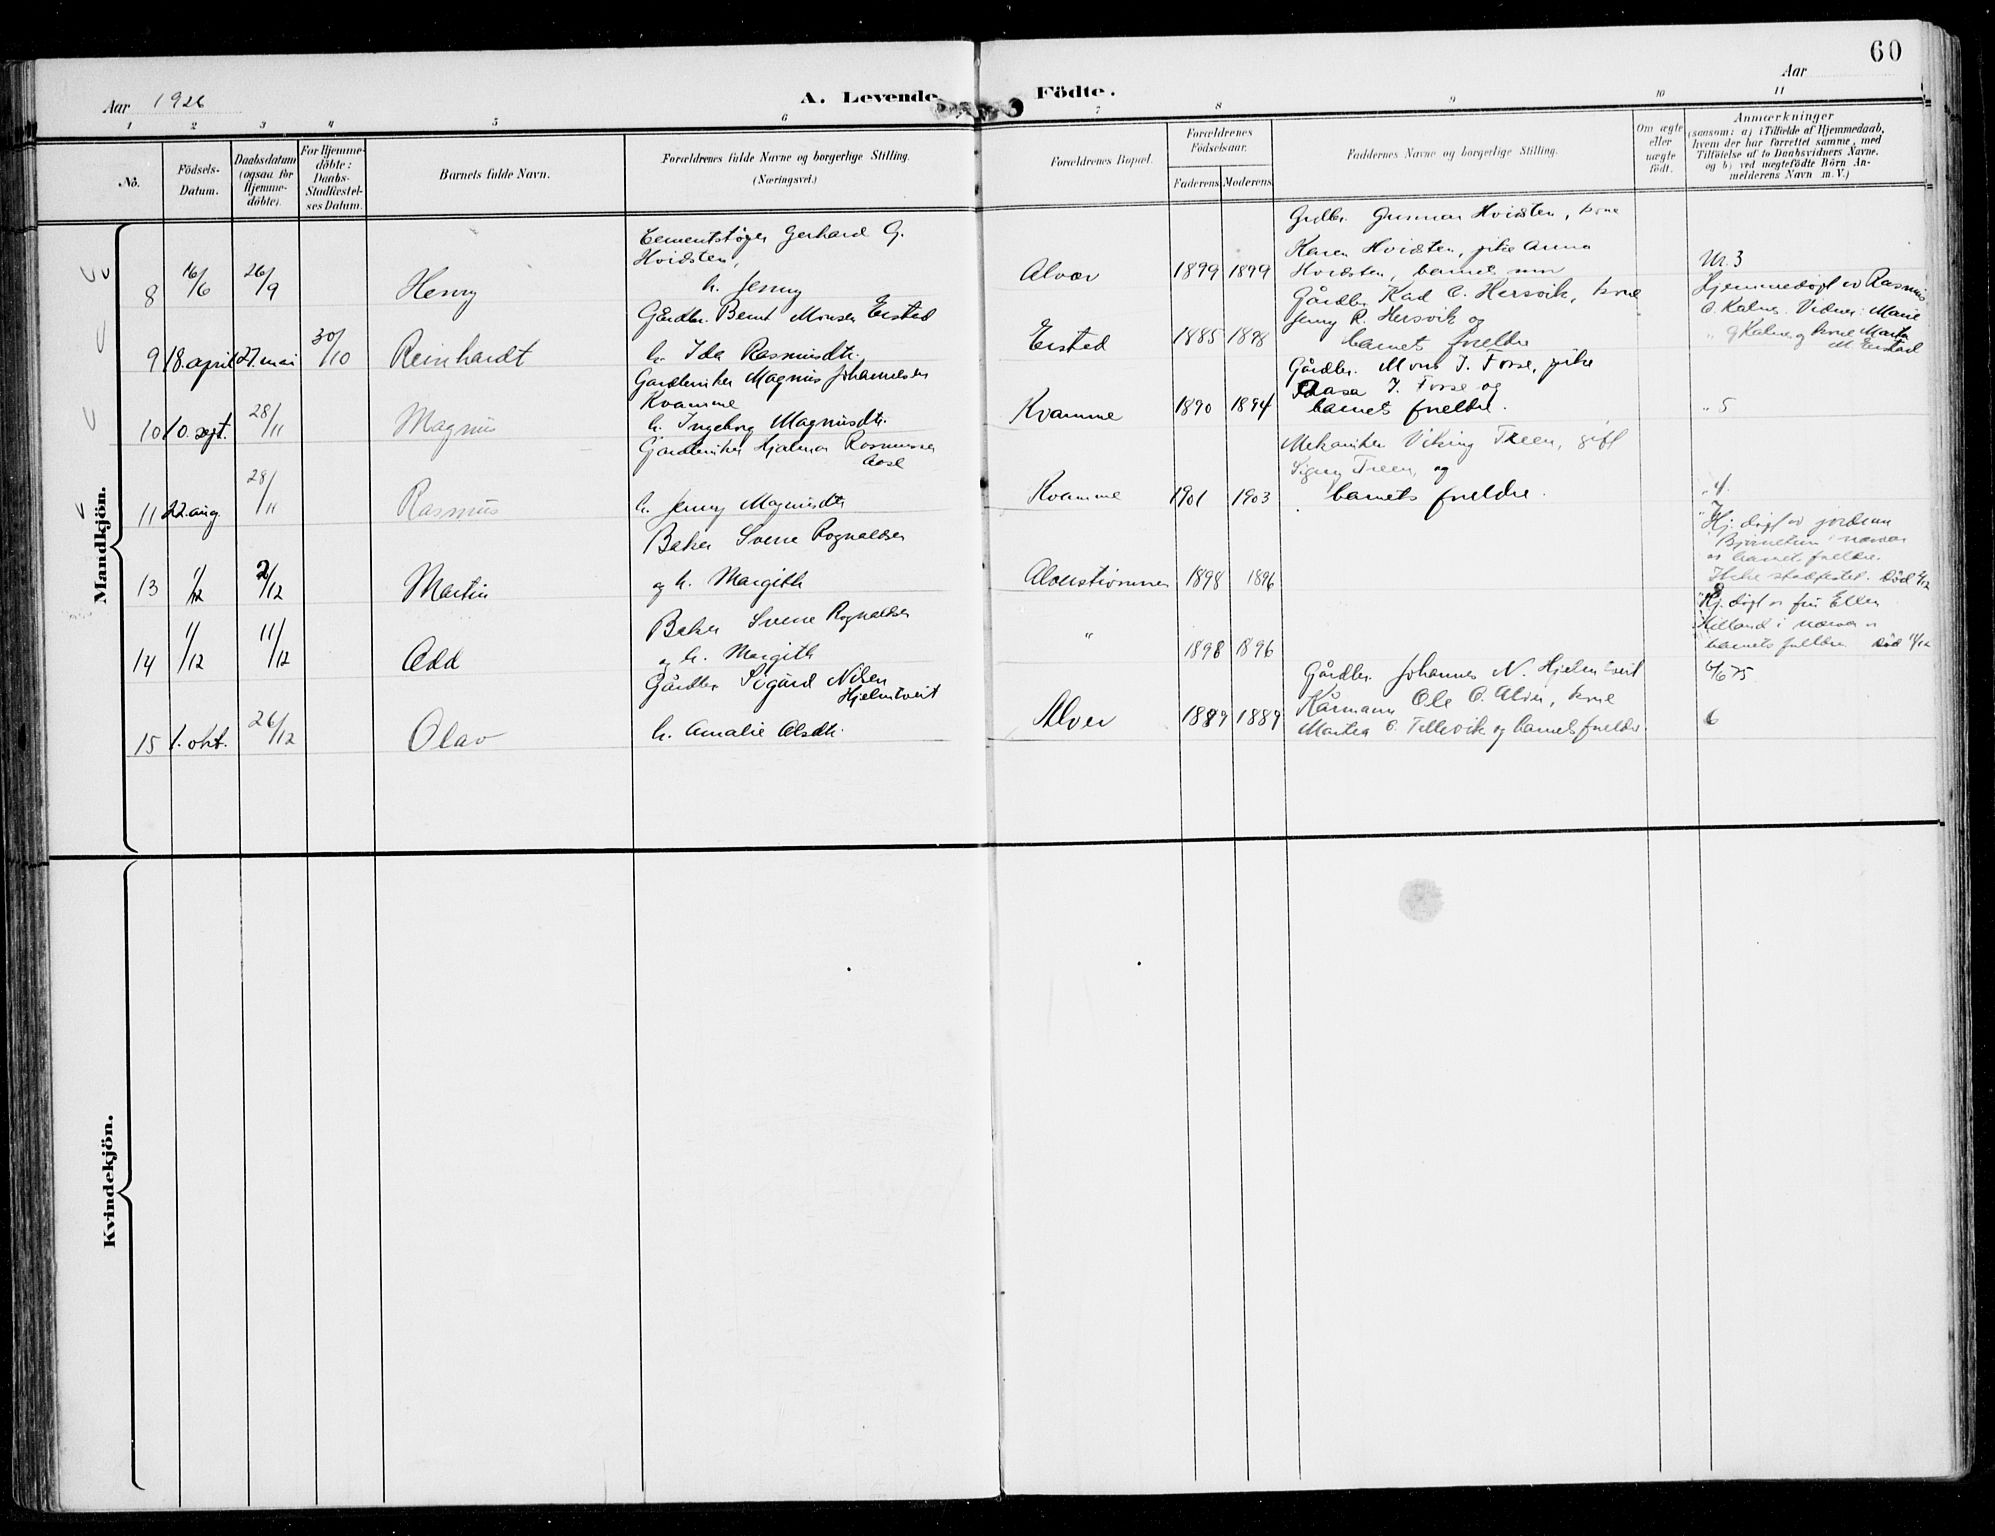 60
Aar 1926
A. Levende
Födte.
Aar
1 2 3 4 5 6 7 8 9 10 11
No.
Födsels-
Datum.
Daabsdatum
(ogsaa for
Hjemme-
döbte).
For Hjemme-
döbte:
Daabs-
Stadfæstel-
ses Datum.
Barnets fulde Navn.
Forældrenes fulde Navne og borgerlige Stilling.
(Næringsvei.)
Forældrenes Bopæl.
Forældrenes
Födselsaar.
Faderens Moderens
Faddernes Navne og borgerlige Stilling.
Om ægte
eller
uægte
födt.
Anmærkninger
(saasom: a) i Tilfælde af Hjemmedaab,
hvem der har forrettet samme, med
Tilföielse af to Daabsvidners Navne.
og b) ved uægtefödte Börn An-
melderens Navn m. V.)
Mandkjön.
8 16/6 26/9 Henry
Cementstøper Gerhard G.
Hvidsten,
h. Jenny
Alver 1899 1899
Grdbr. Gunnar Hvidsten, kone
Karen Hvidsten, pike Anna
Hvidsten, barnets mor
Nr. 3
9 18. april 27. mai 30/10 Reinhardt
Gårdbr. Bernt Monsen Eisted
h. Ida Rasmusdtr.
Eisted 1885 1898
Gårdbr. Karl C. Hersvik, kone
Jenny R. Hersvik og
barnets foreldre
Hjemmedøpt av Rasmus
O. Kalnes. Vidner: Marie
Kalnes og kone Marta
M. Eisted
10 10. sept. 28/11 Magnus
Gardbruker Magnus Johannesen
Kvamme
h. Ingeborg Magnusdtr.
Kvamme 1890 1894
Gårdbr. Mons J. Fosse, pike
Raasa J. Fosse og
barnets foreldre.
" 5
11 22. aug. 28/11 Rasmus
Gårdbruker Hjalmar Rasmussen
Aase
h. Jenny Magnusdtr
Kvamme 1901 1903
Mekaniker Viking Treen, gift
Signy Treen, og
barnets foreldre.
" 4.
13 1/12 2/12 Martin
Baker Sverre Rognaldsen
og h. Margith
Alverstrømmen 1898 1896
" 7
Hj. døpt av jordmor
Bjørnetun i nærvær
av barnets foreldre.
Ikke stadfestet. Død 2/12
14 1/12 11/12 Odd
Baker Sverre Rognaldsen
og h. Margith
" 1898 1896
Hj. døpt av fru Ellen
Kitland i nærvær av
barnets foreldre Død 11/12
15 1. okt. 26/12 Olav
Gårdbr. Sigurd Nilsen
Hjelmtveit
h. Amalie Olsdtr.
Alver 1889 1889
Gårdbr. Johannes N. Hjelmtveit
Kårmann Ole O. Alver, kone
Martha O. Tellevik og barnets foreldre.
6/6 75
6
Kvindekjön.